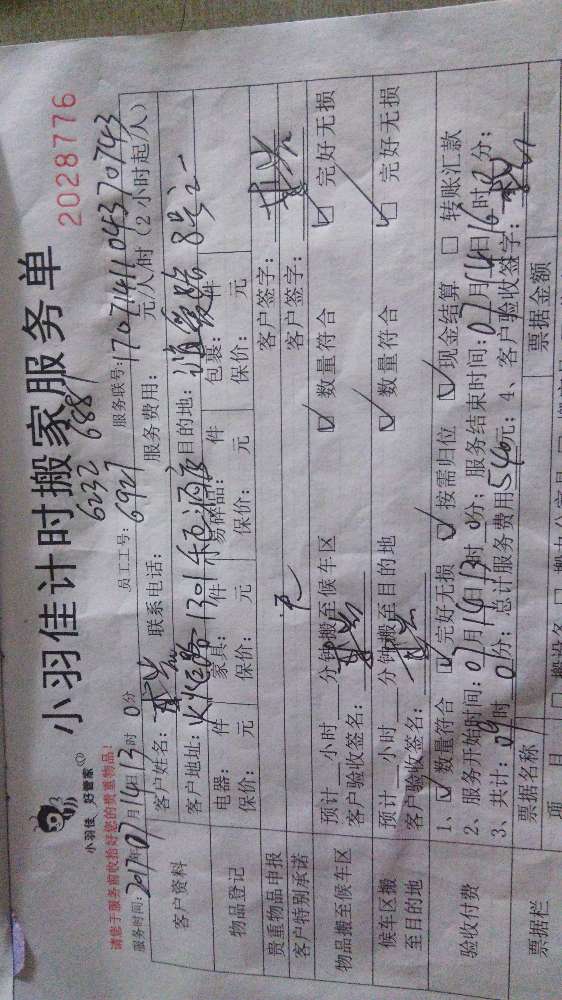 小羽佳计时搬家服务单
2028776
小羽佳 好管家
请您于服务前收拾好您的贵重物品!
6232 6881
服务时间: 2017年07月14日13时0分 员工工号: 6927 服务联号: 170714110437074 3
客户资料
客户姓名: 联系电话: 服务费用: 元/人/时 (2小时起/人)
客户地址: 火炬路1301 目的地: 8号之一
物品登记
电器: 件 家具: 件 易碎品: 件 包裹: 件
保价: 元 保价: 元 保价: 元 保价: 元
贵重物品申报 无 客户签字:
客户特别承诺 客户签字:
物品搬至候车区
预计 小时 分钟搬至候车区 数量符合 完好无损
客户验收签名:
候车区搬至目的地
预计 小时 分钟搬至目的地 数量符合 完好无损
客户验收签名:
验收付费
1、 数量符合 完好无损 按需归位 现金结算 转账汇款
2、服务开始时间: 07月14日13时0分; 服务结束时间: 07月14日16时 分;
3、共计: 时0分; 总计服务费用540元; 4、客户验收签字:
票据栏
票据名称 票据金额
项目